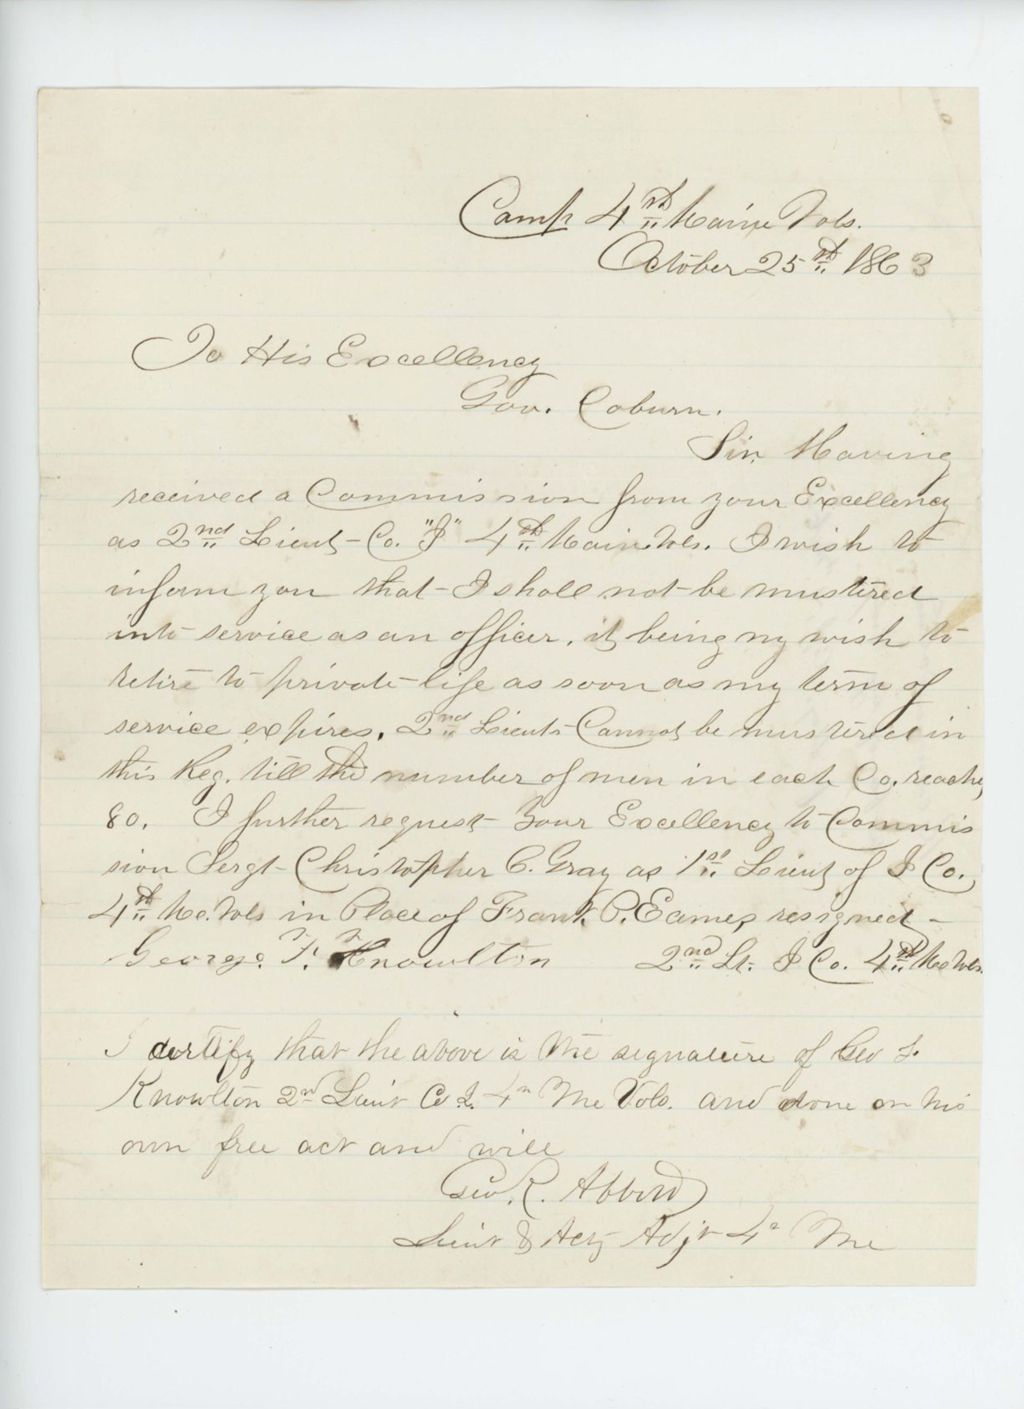 Camp 4th Maine Vols.
October 25th 1863
To His Excellency
Gov. Coburn.
Sir, Having
received a Commission from your Excellency
as 2nd Lieut- Co. "I" 4th Maine Vols. I wish to
inform you that- I shall not- be mustered
into service as an officer, it being my wish to
retire to private life as soon as my term of
service expires. 2nd Lieuts Cannot be mustered in
this Reg. till the number of men in each Co. reach
80. I further request- Your Excellency to Commis
sion Sergt- Christopher C. Gray as 1st Lieut of I Co.
4th Me. Vols in Place of Frank P. Eames resigned -
George. F. Knowlton 2nd Lt. I Co. 4th Me Vols.
I certify that the above is the signature of Geo F.
Knowlton 2nd Lieut Co I. 4th Me Vols. and done on his
own free act and will
Geo. R. Abbott
Lieut & Actg Adjt 4th Me